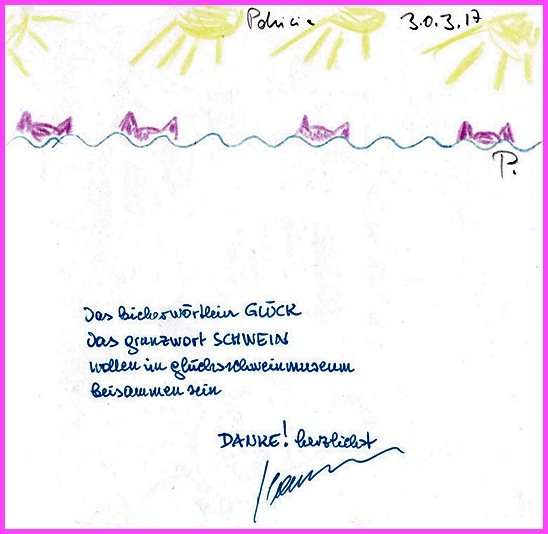 30.3.17
P.
Das kicherwörtlein GLÜCK
Das grunzwort SCHWEIN
wollen im glücksschweinmuseum
beisammen sein
DANKE! herzlichst